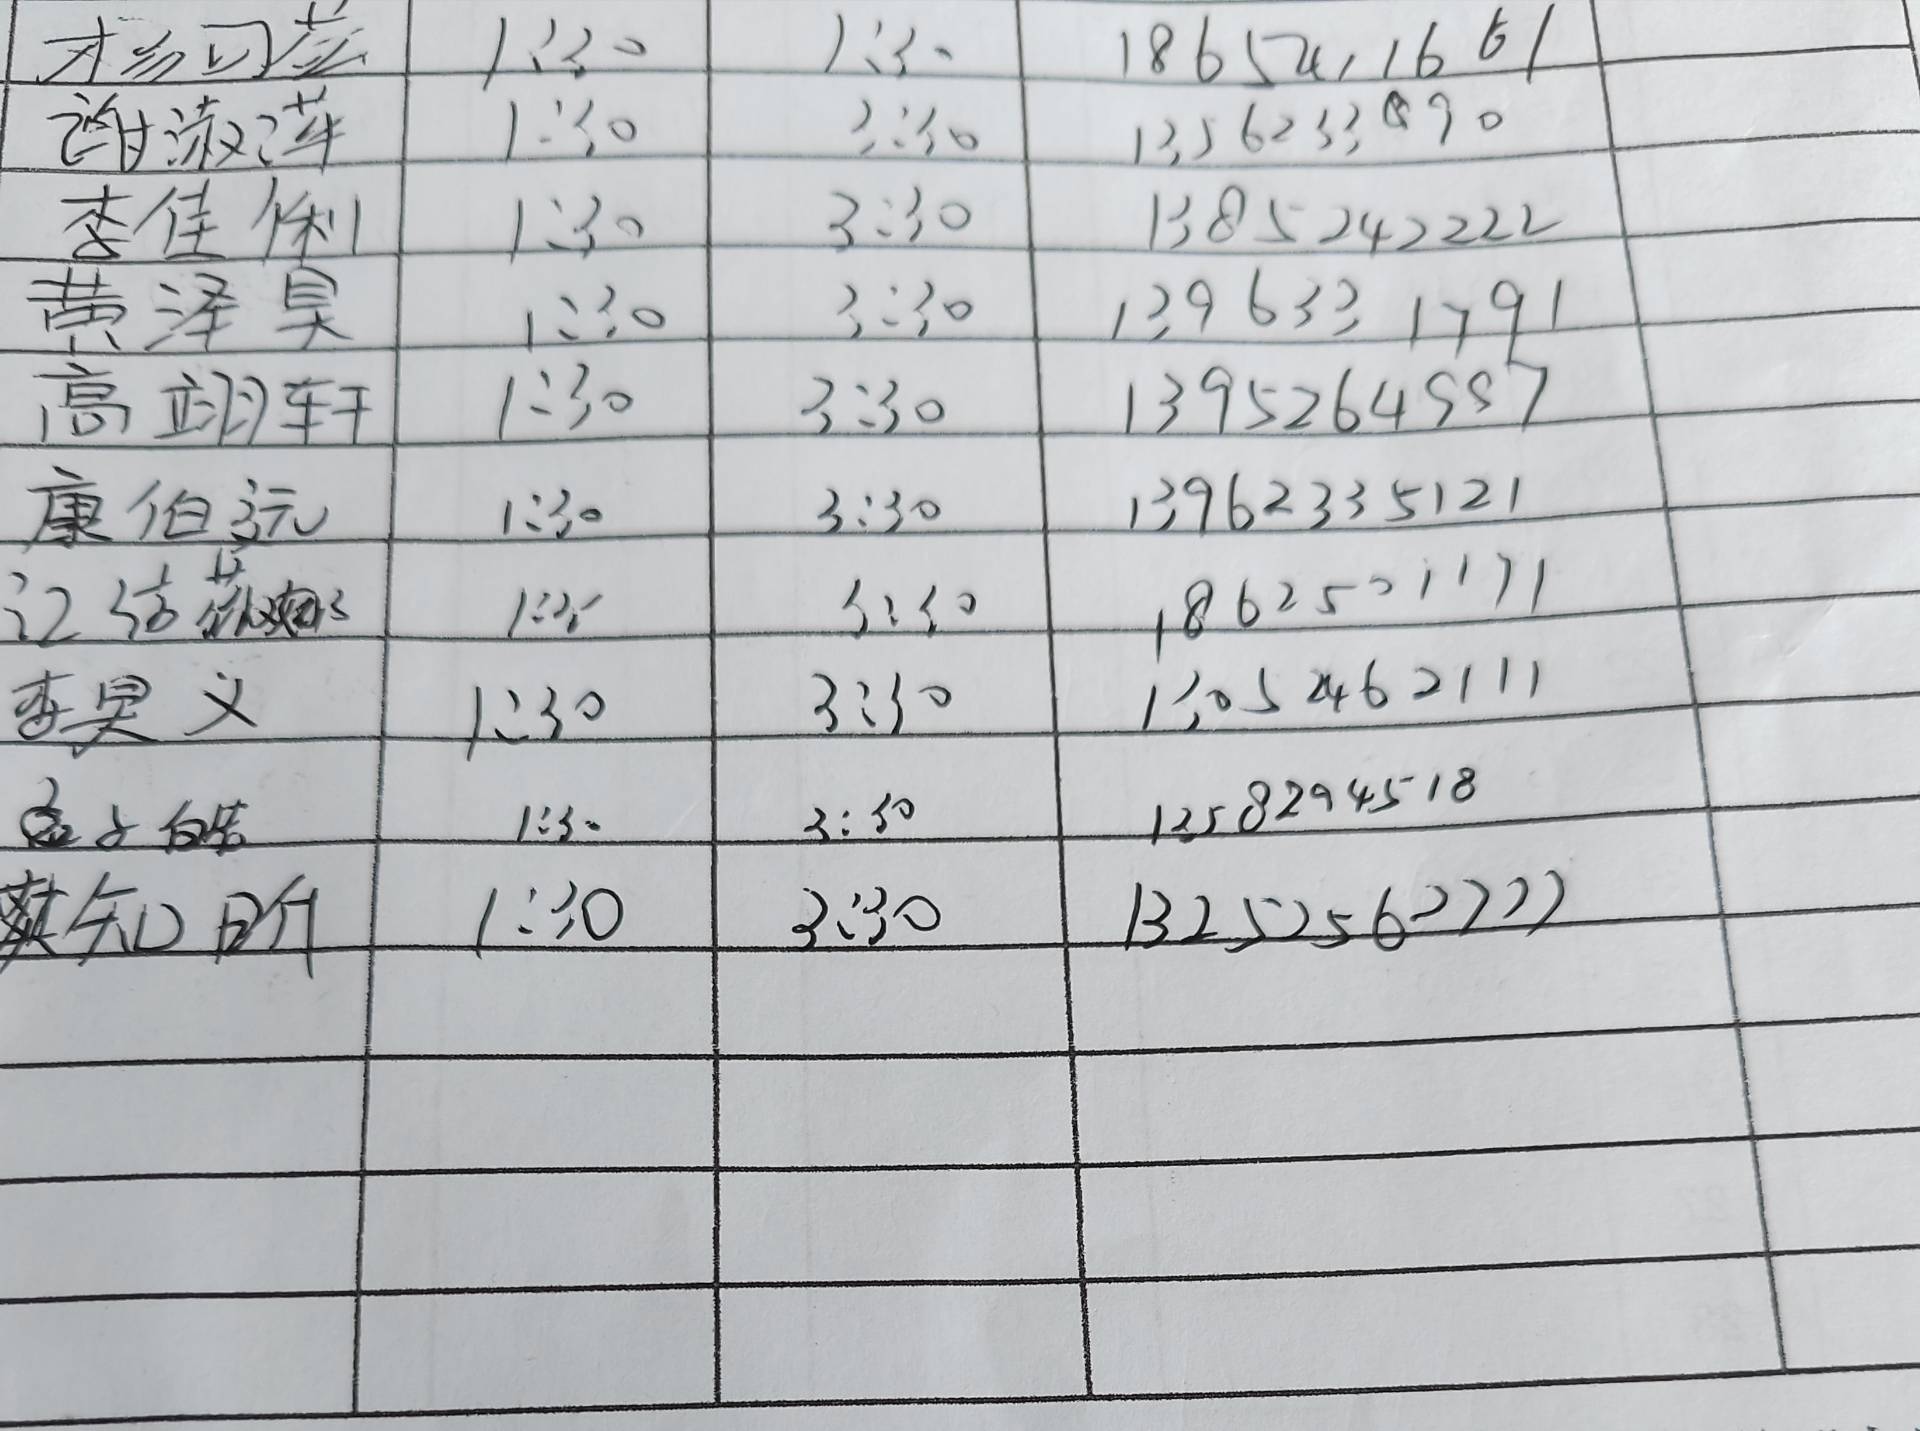 1:30 1:30 18654111661
谢淑萍 1:30 3:30 1356233890
李佳俐 1:30 3:30 1385242222
黄泽昊 1:30 3:30 1396331791
高翊轩 1:30 3:30 13952649987
康伯沅 1:30 3:30 13962335121
1:30 3:30
李昊义 1:30 3:30 13052462111
1:30 3:30 13582994518
知昕 1:30 3:30